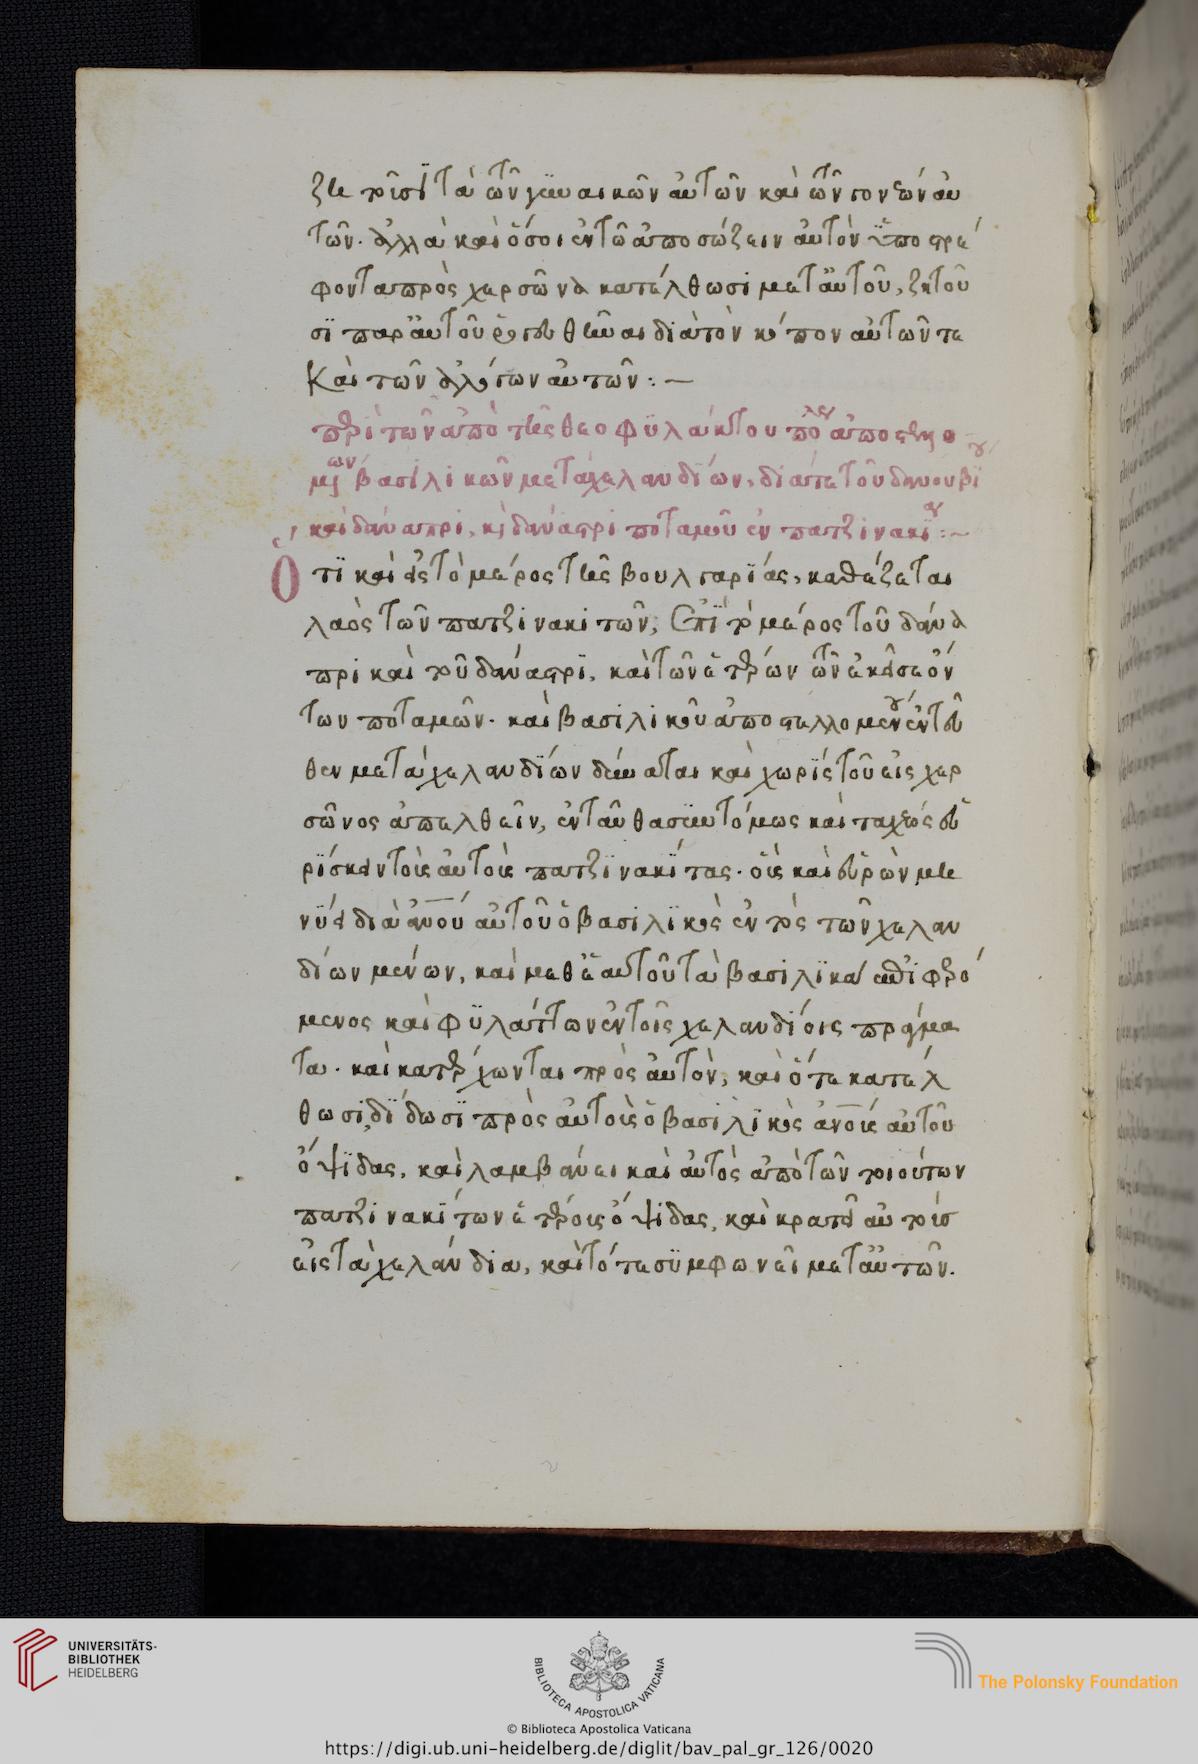 ζητοῦσι τὰ τῶν γυναικῶν αὐτῶν καὶ τῶν γονέων αὐ
τῶν. ἀλλὰ καὶ ὅσοι ἐν τῶ ἀποσώζειν αὐτὸν ὑποστρέ
φοντα πρὸς χερσῶνα κατέλθωσι μετ αὐτοῦ, ζητοῦ
σι παρ αὐτοῦ ῥογευθῆναι διὰ τὸν κόπον αὐτῶν τε
καὶ τῶν ἀλόγων αὐτῶν:—
περὶ τῶν ἀπὸ τῆς θεοφυλάκτου πόλεως ἀποστελλο
μένων βασιλικῶν μετὰ χελανδίων, διά τε τοῦ δανουβί
καὶ δάναπρι, καὶ δάναστρι ποταμοῦ ἐν πατζινακία:—
Οτι καὶ εἰς τὸ μέρος τῆς βουλγαρίας, καθέζεται
λαὸς τῶν πατζινακιτῶν, ἐπὶ τὸ μέρος τοῦ δάνα
πρι καὶ τοῦ δάναστρι, καὶ τῶν ἑτέρων τῶν ἐκεῖσε ὄν
των ποταμῶν. καὶ βασιλικοῦ ἀποστελλομένου ἐντεῦ
θεν μετὰ χελανδίων δύναται καὶ χωρὶς τοῦ εἰς χερ
σῶνος ἀπελθεῖν, ἐνταῦθα συντόμως καὶ ταχέως εὑ
ρίσκειν τοὺς αὐτοὺς πατζινακίτας. οὓς καὶ εὑρὼν μη
νύει διὰ ἀνου αὐτοῦ ὁ βασιλικὸς ἐντὸς τῶν χελαν
δίων μένων, καὶ μεθ ἑαυτοῦ τὰ βασιλικὰ ἐπιφερό
μενος καὶ φυλάττων ἐν τοῖς χελανδίοις πράγμα
τα. καὶ κατέρχωνται πρὸς αὐτὸν, καὶ ὅτε κατέλ
θωσι, δίδωσι πρὸς αὐτοὺς ὁ βασιλικὸς ἀνους αὐτοῦ
ὄψιδας, καὶ λαμβάνει καὶ αὐτὸς ἀπὸ τῶν τοιούτων
πατζινακίτων ἑτέρους ὄψιδας, καὶ κρατεῖ αὐτοὺς
εἰς τὰ χελάνδια, καὶ τότε συμφωνεῖ μετ αὐτῶν.
UNIVERSITÄTS-
BIBLIOTHEK
HEIDELBERG
BIBLIOTECA APOSTOLICA VATICANA
The Polonsky Foundation
© Biblioteca Apostolica Vaticana
https://digi.ub.uni-heidelberg.de/diglit/bav_pal_gr_126/0020